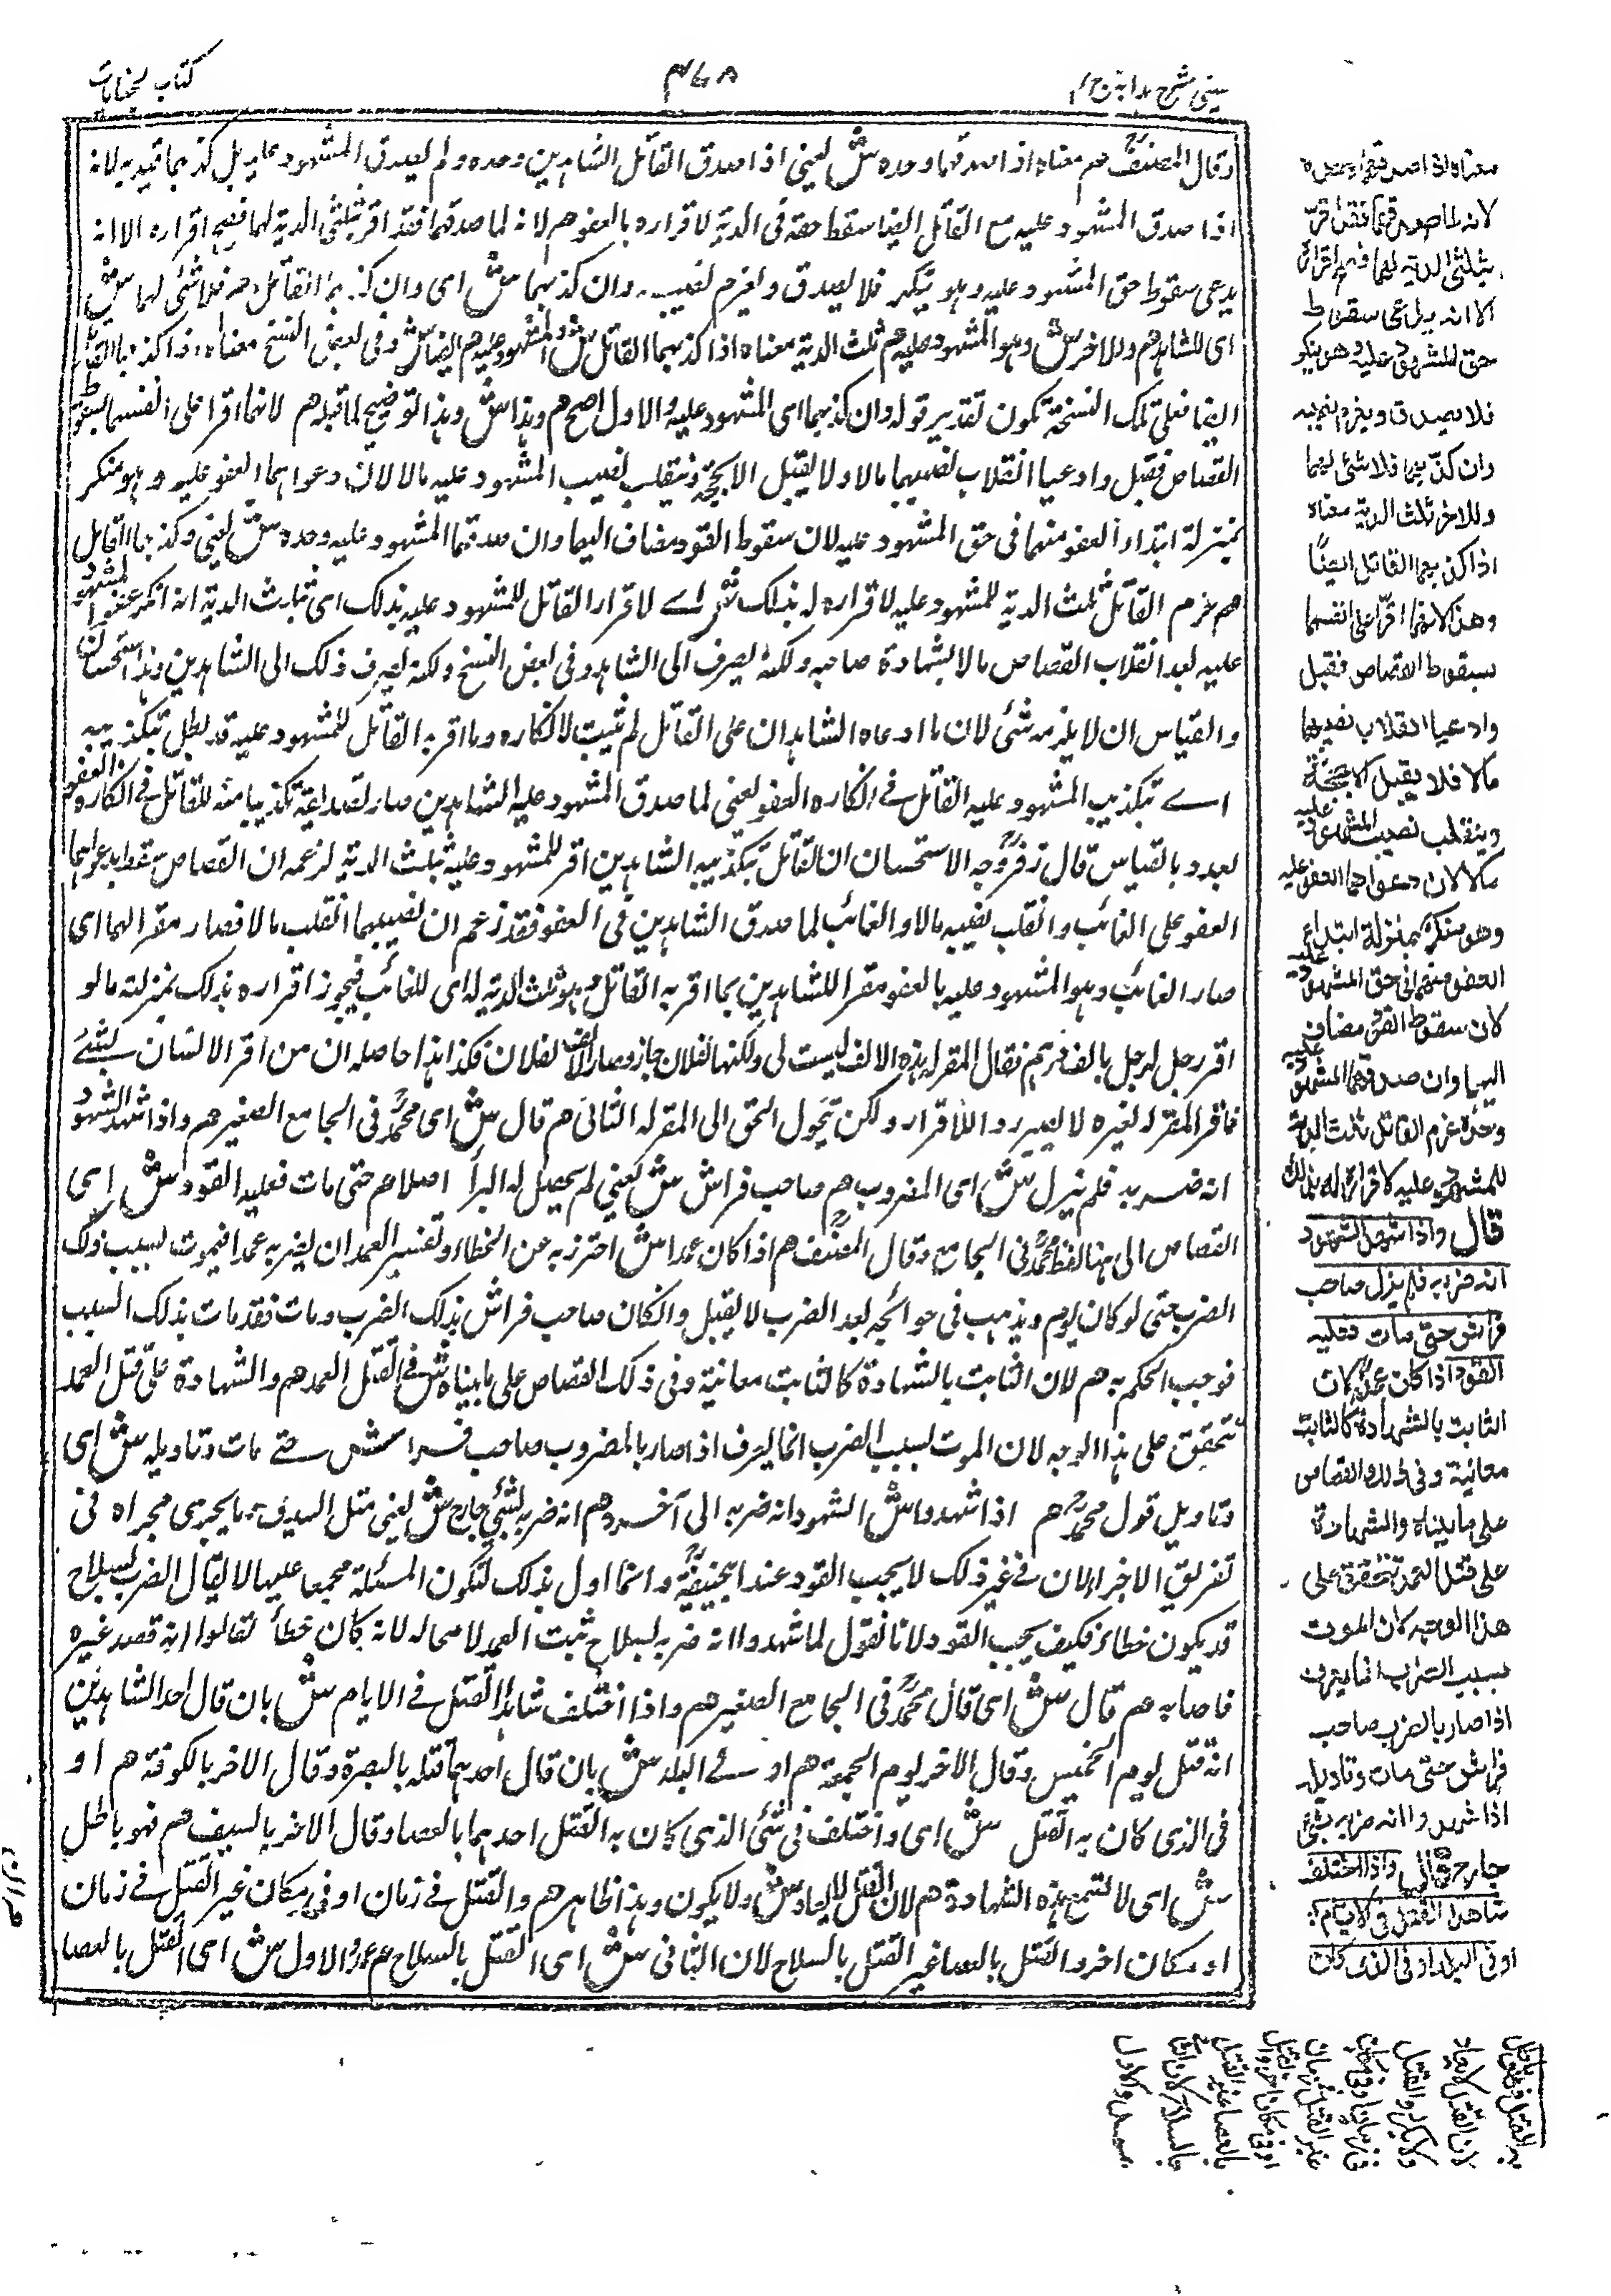 كتاب الجنايات
٤٦٨
عينى شرح هداية ج ٤
وقال المصنف هم معناه اذا صدقهما وحده ش يعنى اذا صدق القاتل الشاهدين وحده ولم يصدق المشهود عليه بل كذبهما قيد به لانه
اذا صدق المشهود عليه مع القاتل ايضا سقط حقه فى الدية لاقراره بالعفو هم لانه لما صدقهما فقد اقر بثلثى الدية لهما فيصح اقراره الا انه
يدعى سقوط حق المشهود عليه وهو ينكر فلا يصدق ويغرم نصيبه وان كذبهما ش اى وان كذبهما القاتل هم فلا شئ لهما ش
اى للشاهد هم وللاخر ش وهو المشهود عليه هم ثلث الدية معناه اذا كذبهما القاتل ش والمشهود عليه هم ايضا ش وفى بعض النسخ معناه اذا كذبهما القاتل
ايضا فعلى تلك النسخة تكون تقدير قوله وان كذبهما اى المشهود عليه والاول اصح هم وهذا ش وهذا التوضيح لما قبله هم لانهما اقرا على انفسهما بسقوط
القصاص فقبل وادعيا انقلاب نصيبهما مالا ولا يقبل الا بحجة وينقلب نصيب المشهود عليه مالا لان دعواهما العفو عليه وهو منكر
بمنزلة ابتداء العفو منهما فى حق المشهود عليه لان سقوط القود مضاف اليهما وان صدقهما المشهود عليه وحده ش يعنى وكذبهما القاتل
هم غرم القاتل ثلث الدية للمشهود عليه لاقراره له بذلك ش اے لاقرار القاتل للمشهود عليه بذلك اى بثلث الدية انه انكر عفو المشهود
عليه بعد انقلاب القصاص مالا بشهادة صاحبه ولكنه يصرف الى الشاهد وفى بعض النسخ ولكنه يصرف ذلك الى الشاهدين وهذا استحسان
والقياس ان لا يلزمه شئ لان ما ادعاه الشاهدان على القاتل لم يثبت لانكاره وما اقر به القاتل للمشهود عليه قد بطل بتكذيبه
اے بتكذيب المشهود عليه القاتل فى انكاره العفو يعنى لما صدق المشهود عليه الشاهدين صار تصديقه تكذيبا منه للقاتل فى انكاره العفو
بعده وبالقياس قال زفر وجه الاستحسان ان القاتل بتكذيبه الشاهدين اقر للمشهود عليه بثلث الدية لزعمه ان القصاص سقط بدعواهما
العفو على الغائب وانقلب نصيبه مالا والغائب لما صدق الشاهدين فى العفو فقد زعم ان نصيبهما انقلب مالا فصار مقرا لهما اى
صار الغائب وهو المشهود عليه بالعفو مقرا للشاهدين بما اقر به القاتل وهو ثلث الدية له اى للغائب فيجوز اقراره بذلك بمنزلته ما لو
اقر رجل لرجل بالف درهم فقال المقر له هذه الالف ليست لى ولكنها لفلان جاز وصار الالف لفلان فكذا هذا حاصله ان من اقر الانسان بشئ
فاقر المقر له لغيره لا يصير ردا للاقرار ولكن يتحول الحق الى المقر له الثانى هم قال ش اى محمد فى الجامع الصغير هم واذا شهد الشهود
انه ضربه فلم يزل ش اى المضروب هم صاحب فراش ش يعنى لم يحصل له البرأ اصلا هم حتى مات فعليه القود ش اى
القصاص الى هنا لفظ محمد فى الجامع وقال المصنف هم اذا كان عمدا ش احترز به عن الخطاء وتفسير العمد ان يضربه عمدا فيموت بسبب ذلك
الضرب حتى لو كان يوم ويذهب فى حوائجه بعد الضرب لا يقبل وان كان صاحب فراش بذلك الضرب ومات فقد مات بذلك السبب
فوجب الحكم به هم لان الثابت بالشهادة كالثابت معاينة وفى ذلك القصاص على ما بيناه ش فى القتل العمد هم والشهادة على قتل العمد
تتحقق على هذا الوجه لان الموت بسبب الضرب انما يعرف اذا صار بالمضروب صاحب فراش حتے مات وتاويله ش اى
وتاويل قول محمد هم اذا شهدوا ش الشهود انه ضربه الى آخره هم انه ضربه بشئ جارح ش يعنى مثل السيف وما يجرى مجراه فى
تفريق الاجزاء لان فے غير ذلك لا يجب القود عند ابيحنيفة وانما اول بذلك لتكون المسئلة مجمعا عليها لا يقال الضرب بسلاح
قد يكون خطاء فكيف يجب القود لانا نقول لما شهدوا انه ضربه بسلاح ثبت العمد لا محاله لانه كان خطأ لقالوا انه قصد غيره
فاصابه هم قال ش اى قال محمد فى الجامع الصغير هم واذا اختلف شاهدا القتل فے الايام ش بان قال احد الشاهدين
انه قتل يوم الخميس وقال الاخر يوم الجمعة هم او فے البلد ش بان قال احدهما قتله بالبصرة وقال الاخر بالكوفة هم او
فى الذى كان به القتل ش اى واختلف فى شئ الذى كان به القتل احدهما بالعصا وقال الاخر بالسيف هم فهو باطل
ش اى لا تسمع هذه الشهادة هم لان القتل لا يعاد ش ولا يكون وهذا ظاهر هم والقتل فے زمان او فى مكان غير القتل فے زمان
او مكان اخر والقتل بالعصا غير القتل بالسلاح لان الثانى ش اى القتل بالسلاح هم عمد والاول ش اى القتل بالعصا
معناه اذا صدقهما وحده
لانه لما صدقهما فقد اقر
بثلثى الدية لهما فصح اقراره
الا انه يدعى سقوط
حق المشهود عليه وهو ينكر
فلا يصدق ويغرم نصيبه
وان كذبهما فلا شئ لهما
وللاخر ثلث الدية معناه
اذا كذبهما القاتل ايضًا
وهذا لانهما اقرا على انفسهما
بسقوط القصاص فقبل
وادعيا انقلاب نصيبهما
مالا فلا يقبل الا بحجة
وينقلب نصيب المشهود عليه
مالا لان دعواهما العفو عليه
وهو منكر بمنزلة ابتداء
العفو منهما فى حق المشهود عليه
لان سقوط القود مضاف
اليهما وان صدقهما المشهود عليه
وحده غرم القاتل ثلث الدية
للمشهود عليه لاقراره له بذلك
قال واذا شهد الشهود
انه ضربه فلم يزل صاحب
فراش حتى مات فعليه
القود اذا كان عمدا لان
الثابت بالشهادة كالثابت
معاينة وفى ذلك القصاص
على ما بيناه والشهادة
على قتل العمد تتحقق على
هذا الوجه لان الموت
بسبب الضرب انما يعرف
اذا صار بالضرب صاحب
فراش حتى مات وتاويله
اذا شهدوا انه ضربه بشئ
جارح قال واذا اختلف
شاهدا القتل فى الايام
او فى البلد او فى الذى كان
به القتل فهو باطل
لان القتل لا يعاد
ولا يكرر والقتل
فى زمان او فى مكان
غير القتل فى زمان
او فى مكان اخر والقتل
بالعصا غير القتل
بالسلاح لان الثانى
عمد والاول